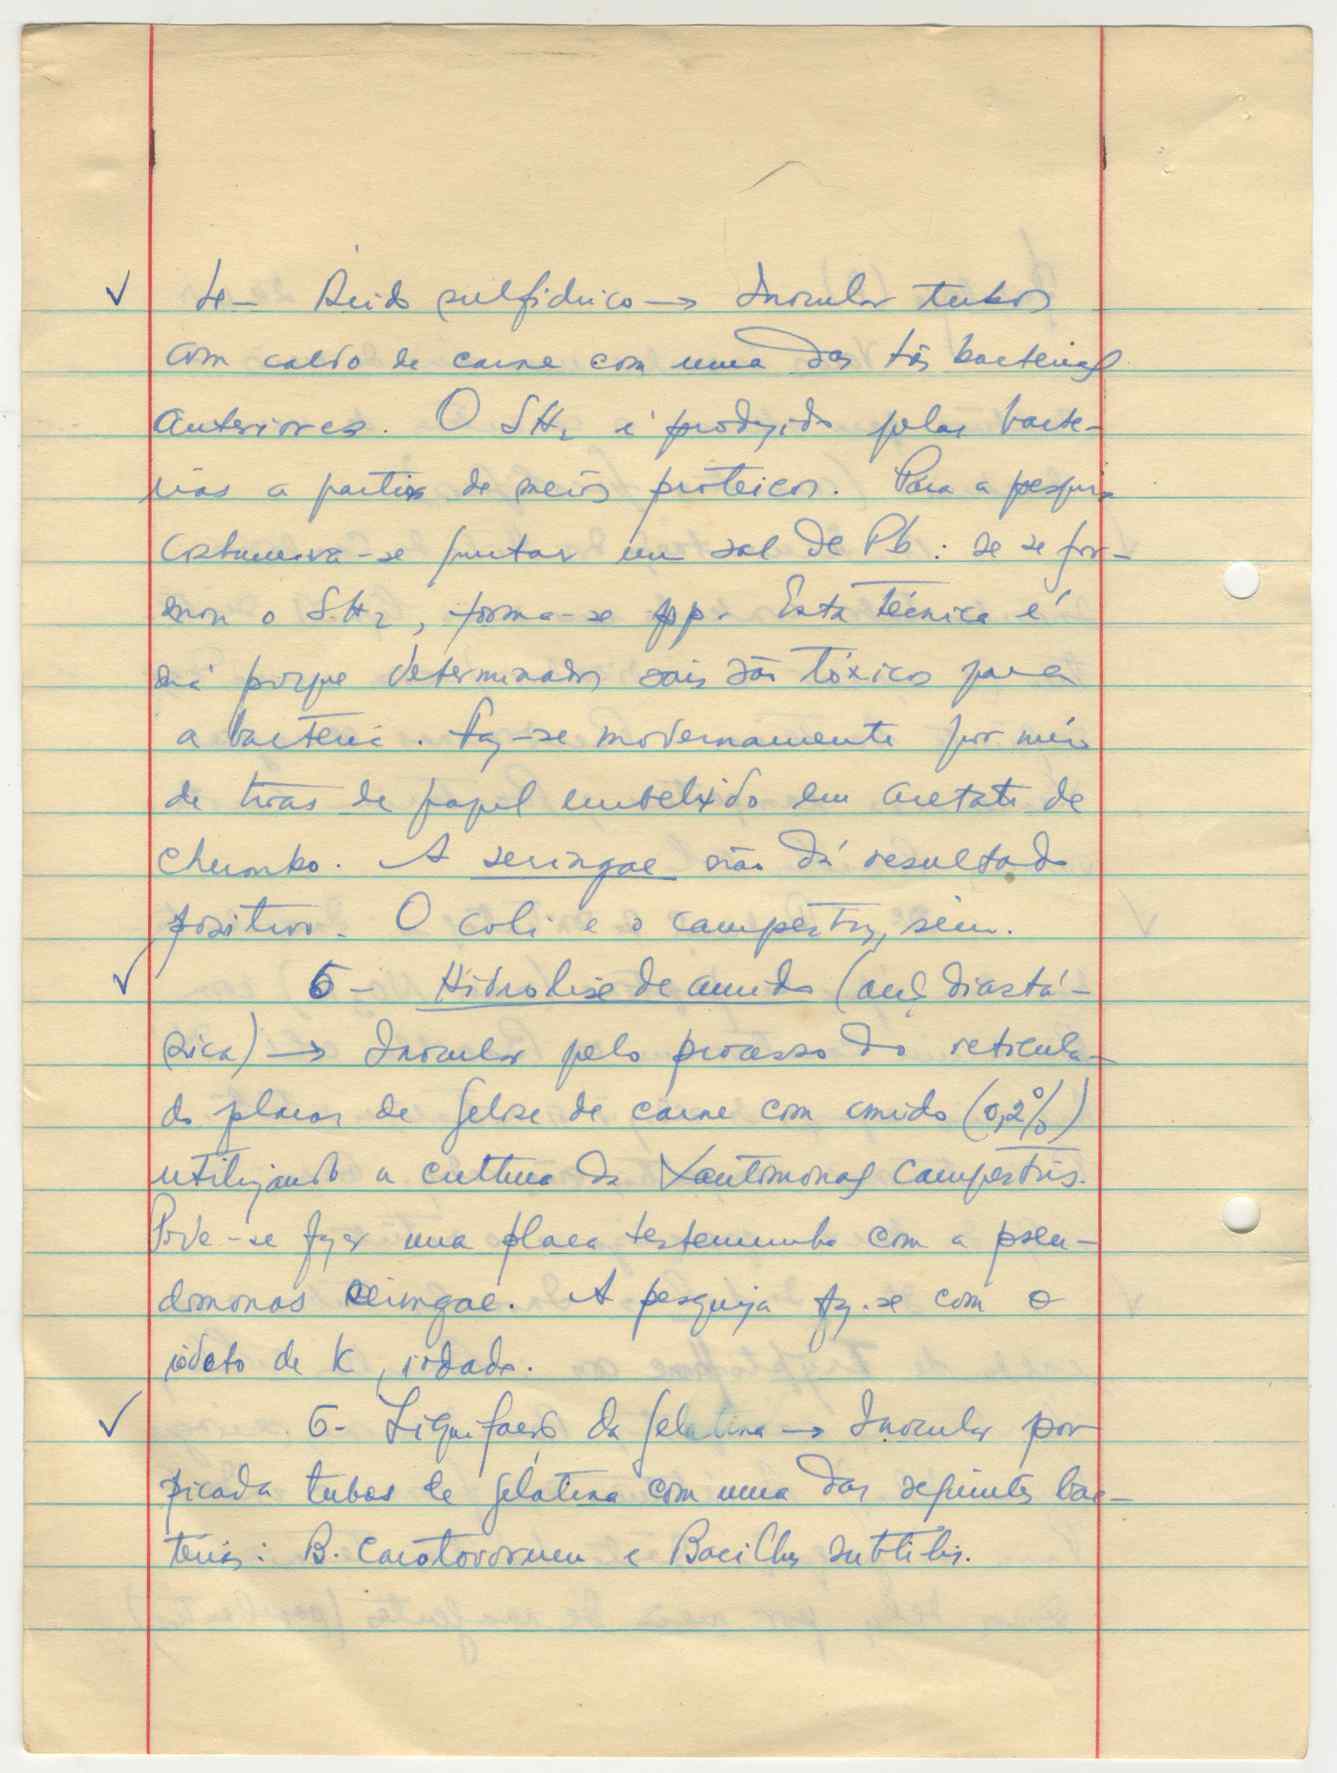 ✓ 4- Ácido sulfídrico → Inocular tubos
com caldo de carne com uma das três bacterias
anteriores. O SH2 é produzido pelas bacte-
rias a partir de meios proteicos. Para a pesquisa
costumava-se juntar um sal de Pb: se se for-
mou o SH2, forma-se pp. Esta técnica é
má porque determinados sais são tóxicos para
a bacteria. Faz-se modernamente por meio
de tiras de papel embebido em acetato de
chumbo. A seringae não dá resultado
positivo. O coli e o campestris, sim.
✓ 5- Hidrolise de amido (acç diastá-
sica) → Inocular pelo processo do reticula-
do placas de gelose de carne com amido (0,2%)
utilizando a cultura da Xantomonas campestris.
Pode-se fazer uma placa testemunha com a pseu-
domonas seringae. A pesquiza faz-se com o
iodeto de K, iodado.
✓ 6- Liquifação da gelatina → Inocular por
picada tubos de gelatina com uma das seguintes bac-
térias: B. carotovorum e Bacillus subtilis.